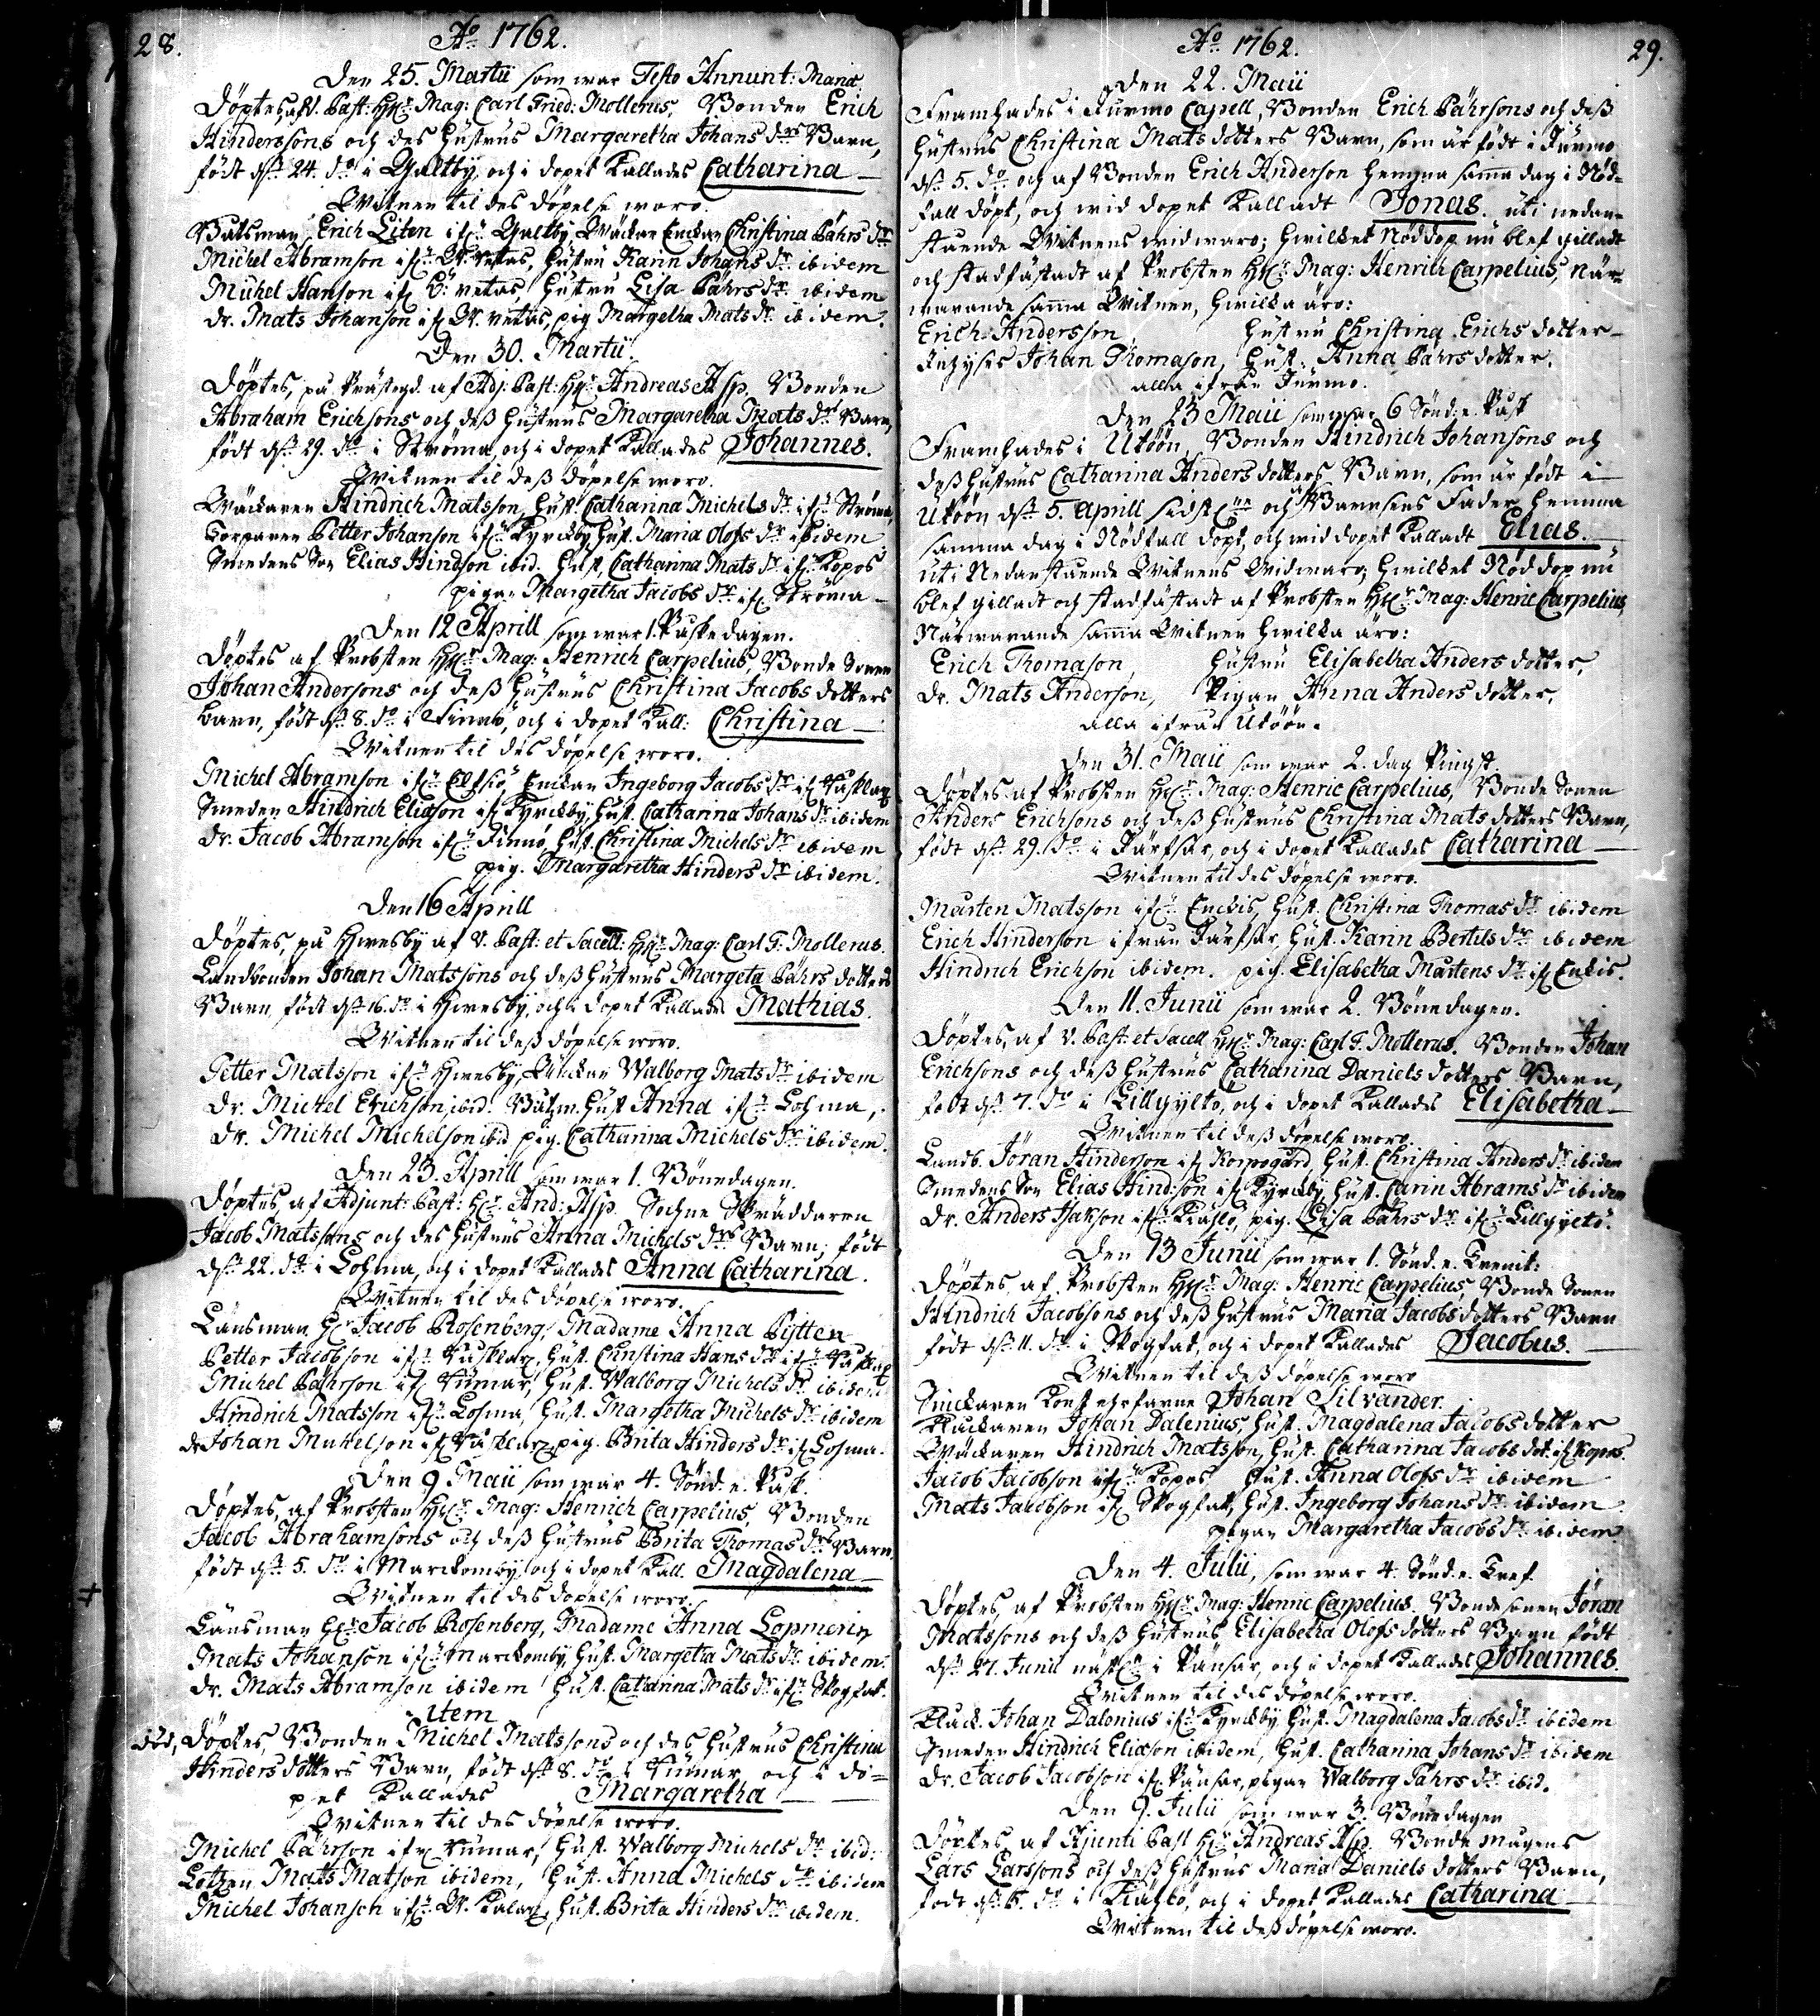 28.
Ao 1762.
Den 25. Martii som war Festo Annunt: Mariæ.
Döptes, af V. Past: HE:r Mag: Carl Fried: Mollerus, Bonden Erich
Hinderssons och des hustrus Margaretha Johans drs Barn,
födt d. 24. do i Galtby, och i dopet kallades Catharina
Witnen til des döpelse woro.
Båtsman Erich Liten ifrn Galtby Enckan Christina Påhrs dr
Michel Abramson ifrn W. retais, hustru Karin Johans dr ibidem
Michel Hanson ifrn Ö: retais hustru Lisa Påhrs dr ibidem
dr. Mats Johanson ifrn W. retais, pig Margetha Mats dr ibidem.
Den 30. Martii.
Döptes, på Prästegd. af Adj: Past: HE:r Andreas Asp, Bonden
Abraham Erichsons och deß hustrus Margaretha Mats drs Barn,
födt d. 29. do i Ströma, och i dopet kallades Johannes.
Witnen til deß döpelse woro.
Hindrich Matsson, hust. Catharina Michels dr ifrn Ströma,
Torparen Petter Johanson ifrn Kyrckby, hust. Maria Olofs dr ibidem
Smedens Son Elias Hindson ibid. hust. Catharina Mats dr ifrn Kopos
pigan Margetha Jacobs dr ifrn Ströma
Den 12 Aprill som war 1. Påskedagen.
Döptes af Probsten HE:r Mag: Henrich Carpelius, Bonde Sonen
Johan Andersons och deß hustrus Christina Jacobs dotters
Barn, födt d. 8. do i Finnö, och i dopet kall: Christina
Witnen til des döpelse woro.
Michel Abramson ifrn Elfsiö, Enckan Ingeborg Jacobs dr ifrn
Smeden Hindrich Eliason ifrn Kyrckby, hust. Catharina Johans dr ibidem
dr. Jacob Abramson ifrn Finnö, hust. Christina Michels dr ibidem
pig. Margaretha Hinders dr ibidem.
Den 16 Aprill
Döptes, på Hwesby af V. Past: et Sacell: HE:r Mag: Carl F. Mollerus.
Landbonden Johan Matssons och deß hustrus Margeta Påhrs dotters
Barn födt d. 16. do i Hwesby, och i dopet kallades Mathias.
Witnen til deß döpelse woro.
Petter Matsson ifrn Hwesby, Enckan Walborg Mats dr ibidem
dr. Michel Erichson ibid. Båtzm. hust Anna ifrn Lohma,
dr. Michel Michelson ibid pig. Catharina Michels dr ibidem.
Den 23. Aprill som war 1. Bönedagen.
Döptes, af Adjunt: Past: HE:r And: Asp. Sochne Skräddaren
Jacob Matssons och des hustrus Anna Michels drs Barn, födt
d. 22. do i Lohma, och i dopet kallades Anna Catharina.
Witnen til des döpelse woro.
Länsman Hr Jacob Rosenberg, Madame Anna
Petter Jacobson ifrn, hust. Christina Hans dr ifrn
Michel Påhrson ifrn Rumar, hust. Walborg Michels dr ibidem
Hindrich Matsson ifrn Lohma, hust. Margetha Michels dr ibidem
dr Johan Michelson ifrn pig. Brita Hinders dr ifrn Lohma.
Den 9 Maii som war 4. Sönd. e. Påsk.
Döptes, af Probsten HE:r Mag: Henrich Carpelius, Bonden
Jacob Abrahamsons och deß hustrus Brita Thomas drs Barn,
födt d. 5. do i Marckomby, och i dopet kall. Magdalena
Witnen til des döpelse woro.
Länsman HE:r Jacob Rosenberg, Madame Anna
Mats Johanson ifrn Marckomby, hust. Margetha Mats dr ibidem.
dr. Mats Abramson ibidem hust. Catharina Mats dr ifrn Skogfat.
Item
Döptes, Bonden Michel Matssons och des hustrus Christina
Hinders dotters Barn, födt d. 8. do i Rumar, och i do=
pet kallades Margaretha
Witnen til des döpelse woro.
Michel Påhrson ifrn Rumar, hust. Walborg Michels dr ibid.
Lotzen Mats Matson ibidem, hust. Anna Michels dr ibidem
Michel Johanson ifrn W. Kalax, hust. Brita Hinders dr ibidem.
29.
Ao 1762.
Den 22. Maii
Framhades i Jurmo Capell, Bonden Erich Påhrsons och deß
hustrus Christina Mats dotters Barn, som är födt i Jurmo
d. 5. do och af Bonden Erich Anderson hemma samma dag i Nöd=
fall döpt, och wid dopet kalladt Jonas. uti nedan=
stående Witnens widwaro; hwilket Nöddop nu blef gilladt
och stadfästadt af Probsten HE:r Mag: Henrich Carpelius, när=
warande samma Witnen, hwilka äro:
Erich Andersson hustru Christina Erichs dotter
Johan Thomason, hust. Anna Påhrs dotter.
alla ifrån Jurmo.
Den 23 Maii som war 6 Sönd: e. Påsk
Framhades i Utöön, Bonden Hindrich Johansons och
deß hustrus Catharina Anders dotters Barn, som är födt i
Utöön d. 5. Aprill sidstl. och af Barnsens Fader hemma
samma dag i Nödfall döpt, och wid dopet kalladt Elias.
uti Nedanstående Witnens Widwaro; hwilket Nöddop nu
blef gilladt och stadfästadt af Probsten HE:r Mag: Henric Carpelius,
Närwarande samma Witnen hwilka äro:
Erich Thomason, hustru Elisabetha Anders dotter,
dr. Mats Anderson, Pigan Anna Anders dotter,
alla ifrån Utöön.
Den 31. Maii som war 2. dag Pingst.
Döptes af Probsten HE:r Mag: Henric Carpelius, Bonde Sonen
Anders Erichsons och deß hustrus Christina Mats dotters Barn,
födt d. 29. do i Järfsär, och i dopet kallades Catharina
Witnen til des döpelse woro.
Mårten Matsson ifrn Enckis, hust. Christina Thomas dr ibidem
Erich Hinderson ifrån Järfsär, hust. Karin Bertils dr ibidem
Hindrich Erichson ibidem. pig. Elisabetha Mårtens dr ifrn Enkis.
Den 11. Junii som war 2. Bönedagen.
Döptes, af V. Past: et Sacell HE:r Mag: Carl F. Mollerus. Bonden Johan
Erichsons och deß hustrus Catharina Daniels dotters Barn,
födt d. 7. do i Lillgyltö, och i dopet kallades Elisabetha
Witnen til deß döpelse woro.
Landb. Jöran Hinderson ifrn Korpogård, hust. Christina Anders dr ibidem
Smedens Son Elias Hind:son ifrn Kyrckby, hust. Carin Abrams dr ibidem
dr. Anders Isakson ifrn, pig. Lisa Påhrs dr ifrn Lillgyltö.
Den 13 Junii som war 1. Sönd. e. Trenit:
Döptes, af Probsten HE:r Mag: Henric Carpelius, Bonde Sonen
Hindrich Jacobsons och deß hustrus Maria Jacobs dotters Barn
födt d. 11. do i Skogfat, och i dopet kallades Jacobus.
Witnen til deß döpelse woro
Snickaren Konst ehrfarne Johan Silvander.
Klockaren Johan Dalenius, hust. Magdalena Jacobs dotter
Hindrich Matsson, hust. Catharina Jacobs dot. ifrn Kopos.
Jacob Jacobson ifrn Kopos hust. Anna Olofs dr ibidem
Mats Jacobson ifrn Skogfat, hust. Ingeborg Johans dr ibidem
pigan Margaretha Jacobs dr ibidem.
Den 4. Julii, som war 4. Sönd. e. Tref.
Döptes, af Probsten HE:r Mag: Henric Carpelius. Bonde sonen Jöran
Matssons och deß hustrus Elisabetha Olofs dotters Barn födt
d. 27. Junii nästl. i Pänsar, och i dopet kallades Johannes.
Witnen til des döpelse woro.
Klock. Johan Dalenius ifrn Kyrckby, hust. Magdalena Jacobs dr ibidem
Smeden Hindrich Eliason ibidem, hust. Catharina Johans dr ibidem
dr. Jacob Jacobson ifrn Pänsar, pigan Walborg Påhrs dr ibid.
Den 9. Julii som war 3. Bönedagen
Döptes af Ajunti Past HE:r Andreas Asp. Bonde mågens
Lars Larssons och deß hustrus Maria Daniels dotters Barn,
födt d. 6. do i, och i dopet kallades Catharina
Witnen til deß döpelse woro.